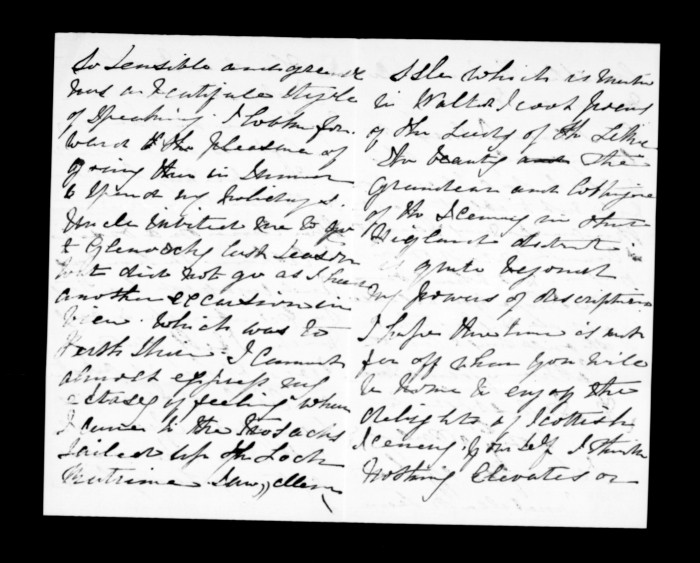 So Sensible and
has a beautiful Style
of Speaking. I look for
ward to the pleasure of
going there in Summer
to Spend my holidays.
Uncle invited me to go
to last Season
but did not go as I had
another excursion in
View. Which was to
Perth Shire. I cannot
almost express my
ecstasy of feeling when
I came to the Trosachs
Sailed up the Loch
Katrine. Saw, Ellen
Isle which is
in Walter Scott poems
of the Lady of the Lake
the beauty and the
Grandeur and
of the Scenery in that
Highland district is
quite beyond
my powers of description
I hope the time is not
far off when you will
be home to enjoy the
delights of Scottish
Scenery. yourself I think
Nothing Elevates or